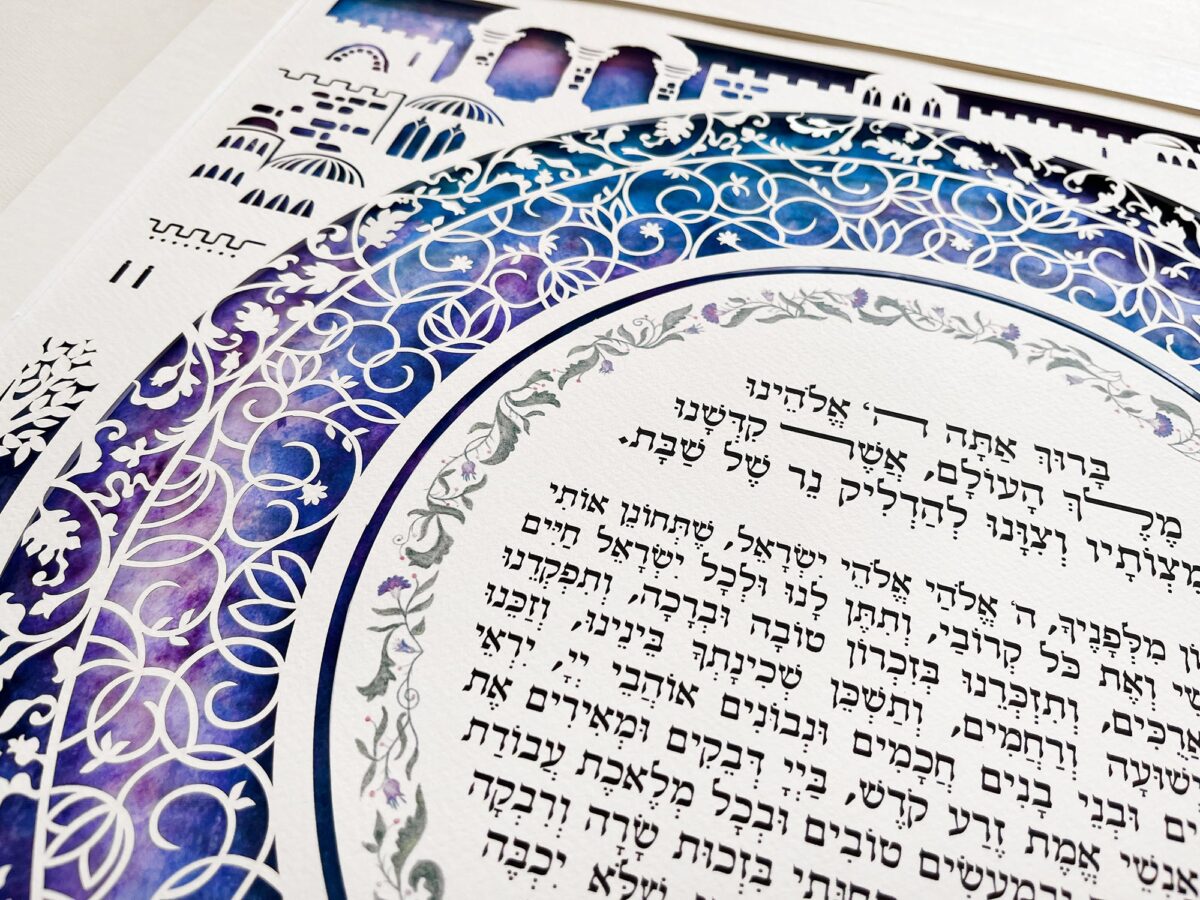 בָּרוּךְ אַתָּה ה' אֱלֹהֵינוּ
מֶלֶךְ הָעוֹלָם, אֲשֶׁר קִדְּשָׁנוּ
בְּמִצְוֹתָיו וְצִוָּנוּ לְהַדְלִיק נֵר שֶׁל שַׁבָּת.
מִלְּפָנֶיךָ, ה' אֱלֹהַי אֱלֹהֵי יִשְׂרָאֵל, שֶׁתְּחוֹנֵן אוֹתִי
וְאֶת כֹּל קְרוֹבַי, וְתִתֶּן לָנוּ וּלְכָל יִשְׂרָאֵל חַיִּים
אֲרֻכִּים, וְתִזְכְּרֵנוּ בְּזִכְרוֹן טוֹבָה וּבְרָכָה, וְתִפְקְדֵנוּ
יְשׁוּעָה וְרַחֲמִים, וְתַשְׁכֵּן שְׁכִינָתְךָ בֵּינֵינוּ, וְזַכֵּנוּ
וּבְנֵי בָנִים חֲכָמִים וּנְבוֹנִים אוֹהֲבֵי יְיָ, יִרְאֵי
אַנְשֵׁי אֱמֶת זֶרַע קֹדֶשׁ, בַּיְיָ דְּבֵקִים וּמְאִירִים אֶת
וּבְמַעֲשִׂים טוֹבִים וּבְכָל מְלֶאכֶת עֲבוֹדַת
בִּזְכוּת שָׂרָה וְרִבְקָה
שֶׁלֹּא יִכְבֶּה